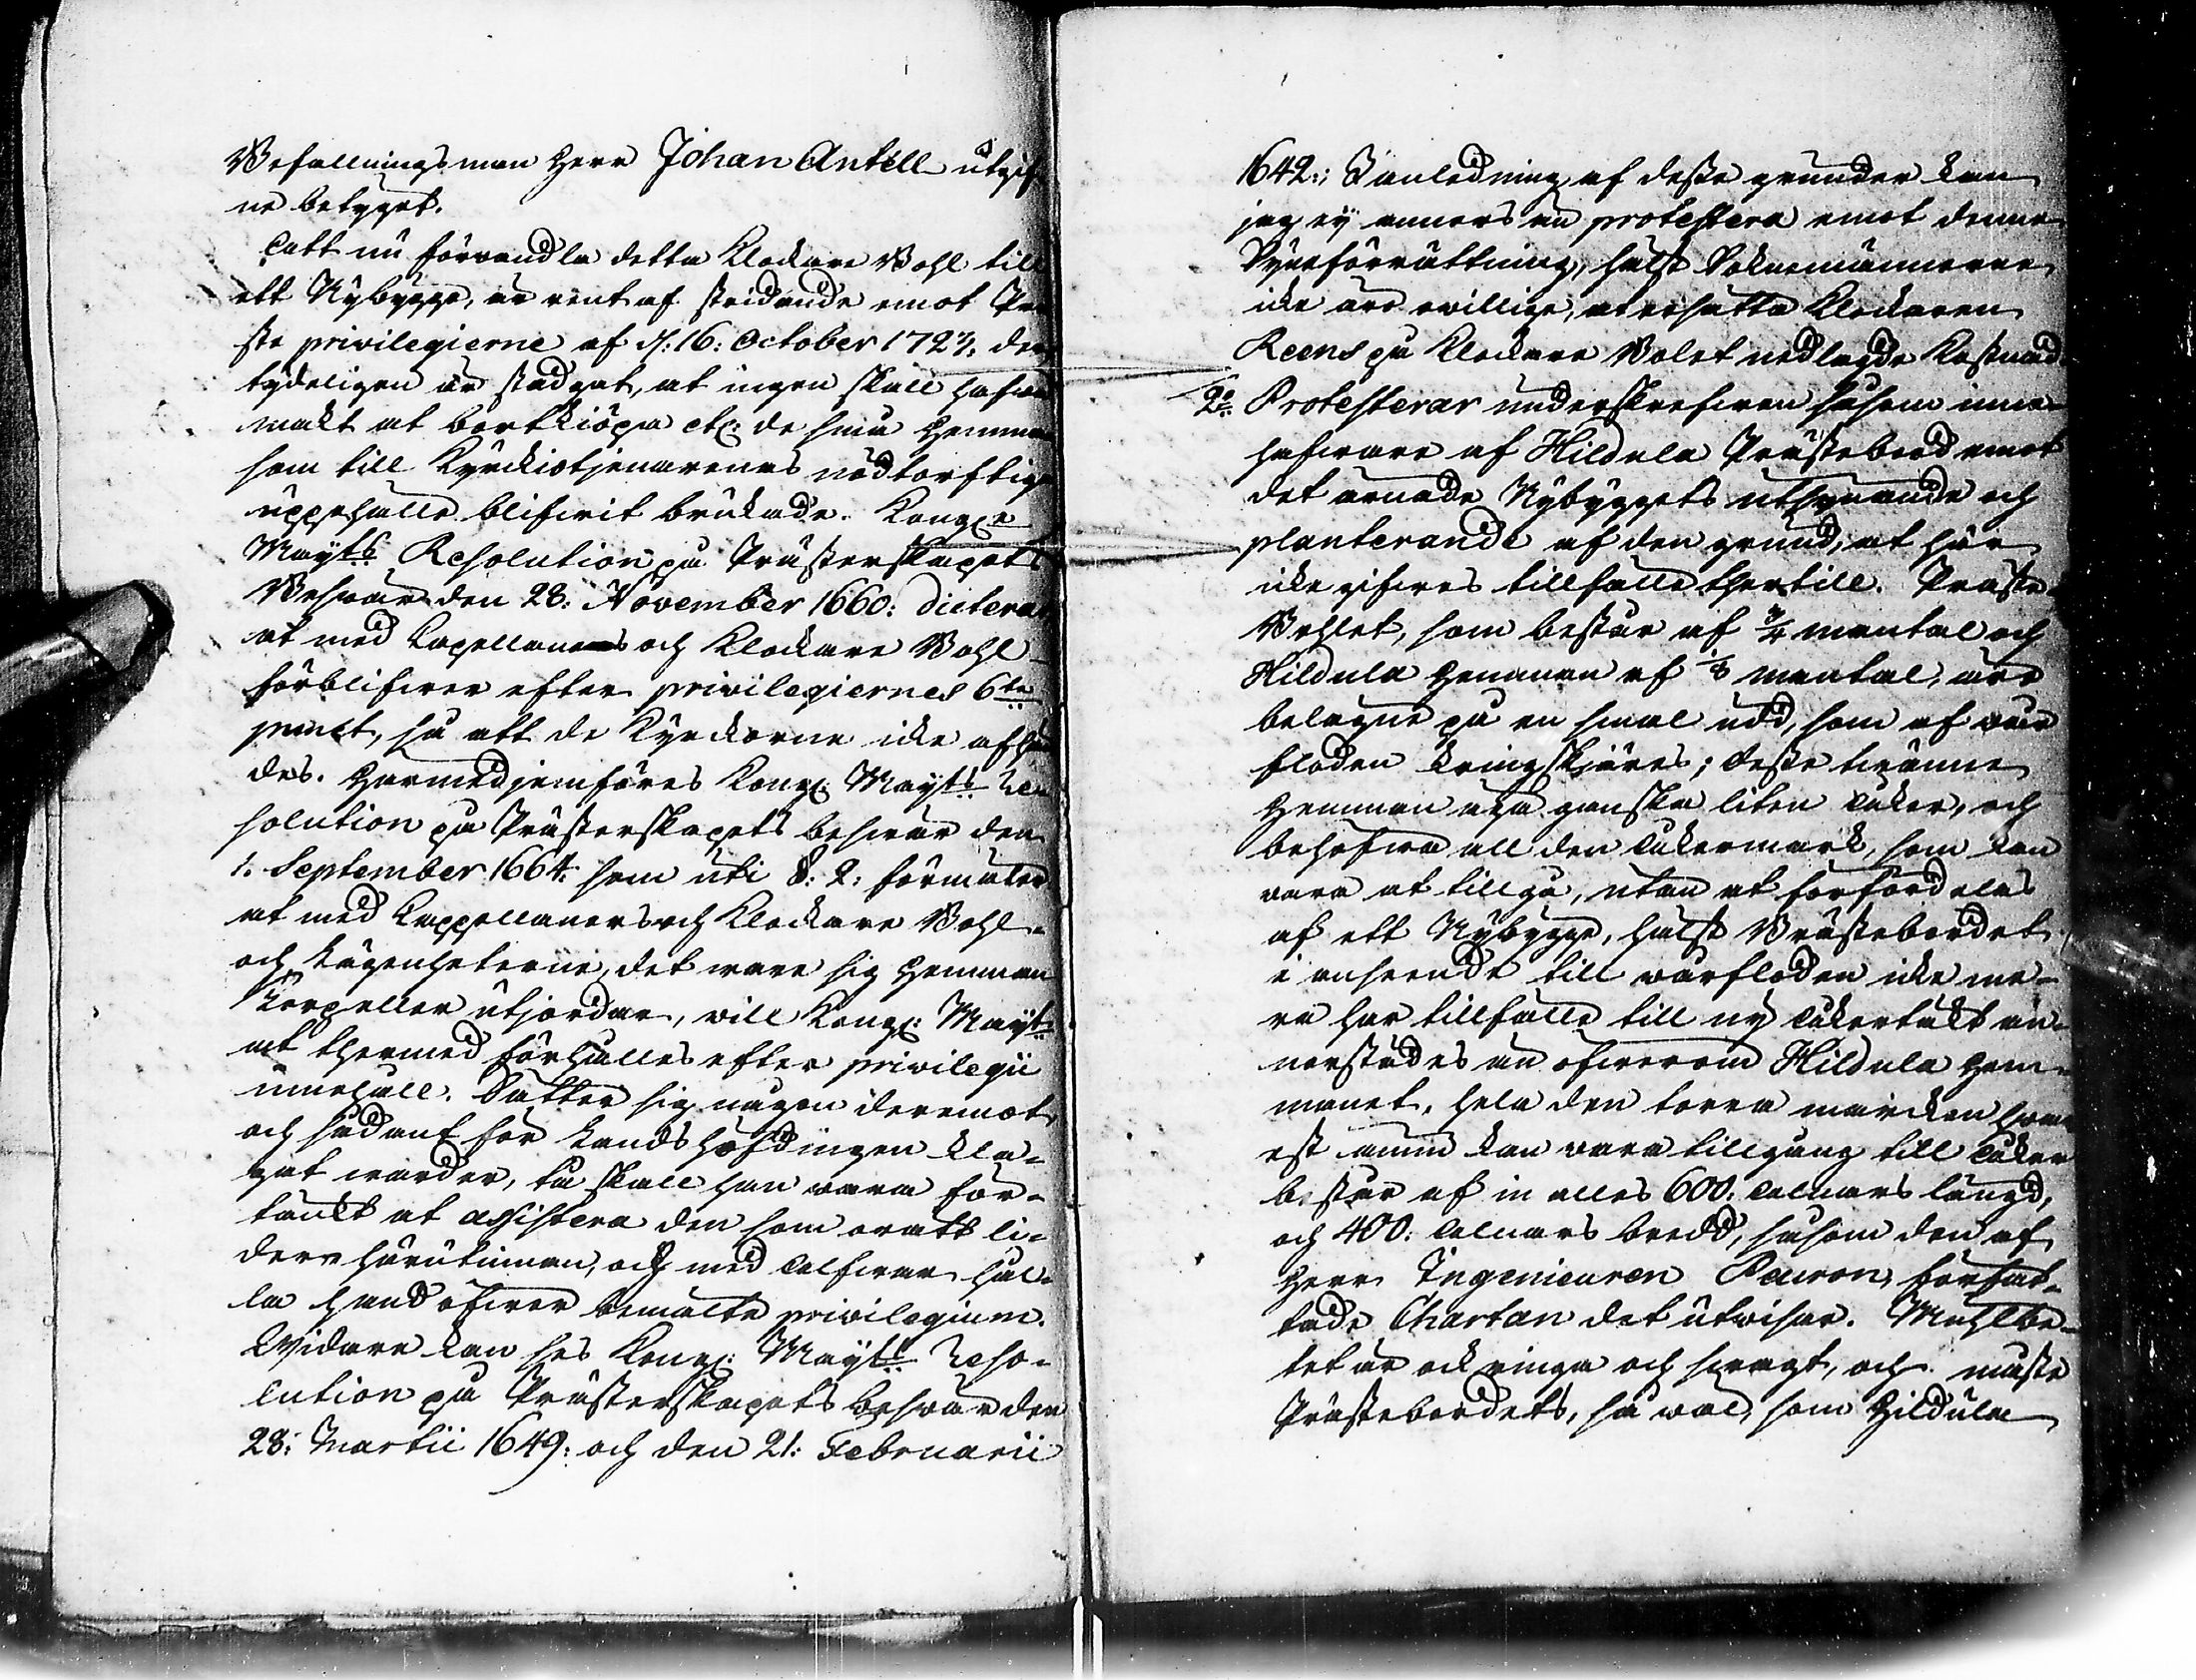 Befallningsman Herr Johan Antell utgif
ne betyget.
Att nu förvandla detta Klockare Bohl till
ett Nybygge, är rent af stridande emot Pre
ste privilegierne af d. 16: October 1723, der
tydeligen är stadgat, at ingen skall hafwa
makt at bortkiöpa etc: de små Hemman
som till Kyrckiotjenarenas nödtorftige
uppehälle blifwit brukade. Kongl:e
Mayts Resolution på Prästerskapets
Beswär den 28: November 1660: dicterar
at med Capellanens och Klockare Bohl
förblifwer efter privilegiernes 6te
punct, så att de Kyrckorne icke afhän
des. Härmed jemföres Kongl: Mayts Re
solution på Prästerskapets beswär den
1. September 1664: som uti §: 2: förmäler
at med Cappellaners och Klockare Bohl
och Lägenheterne, det ware sig Hemman
Torp eller utjordar, will Kongl: Mayt
at thermed förhålles efter privilegii
innehåll. Sätter sig någon deremot,
och sådant för Landshöfdingen kla-
gat warder, tå skall han wara för-
tänkt at assistera den som orätt li-
der härutinnan, och med alfwar hål-
la hand öfwer bemälte privilegium.
Widare kan ses Kongl: Mayts Reso-
lution på Prästerskapets beswär den
28: Martii 1649: och den 21: Februarii
1642:; I anledning af desse grunder kan
jag ey annors än protestera emot denne
Syneförrättning, hälst Soknemännerne
icke äro willige, at ersätta Klockaren
Reens på Klockare Bolet nedlagde Kostnad
2o Protesterar underskrefwen såsom inne-
hafware af Hildula Prästebord emot
det ärnade Nybyggets uthsynande och
planterande af den grund, at här
icke gifwes tillfälle thertill. Präste-
Bohlet, som består af 3/4 mantal och
Hildula Hemman af 1/8 mantal, äro
belägne på en smal udd, som af wår
floden kringskjäres; desse twänne
Hemman äga ganska liten Åker, och
behöfwa all den Åkermark, som kan
vara at tillgå, utan at förfördelas
af ett Nybygge, hälst Prästebordet
i anseende till wårfloden icke me-
ra har tillfälle till ny Åkertäkt an-
norstädes än ofwerom Hildula Hem-
manet, hela den torra marcken hwar-
est ännu kan wara tillgång till Åker
består af in alles 600: Alnars längd,
och 400: Alnars bredd, såsom den af
Herr Ingenieuren Pewron förfat-
tade Chartan det utwisar. Muhlbe-
tet är ock ringa och swagt, och måste
Prästebordets, så wäl, som Hildula